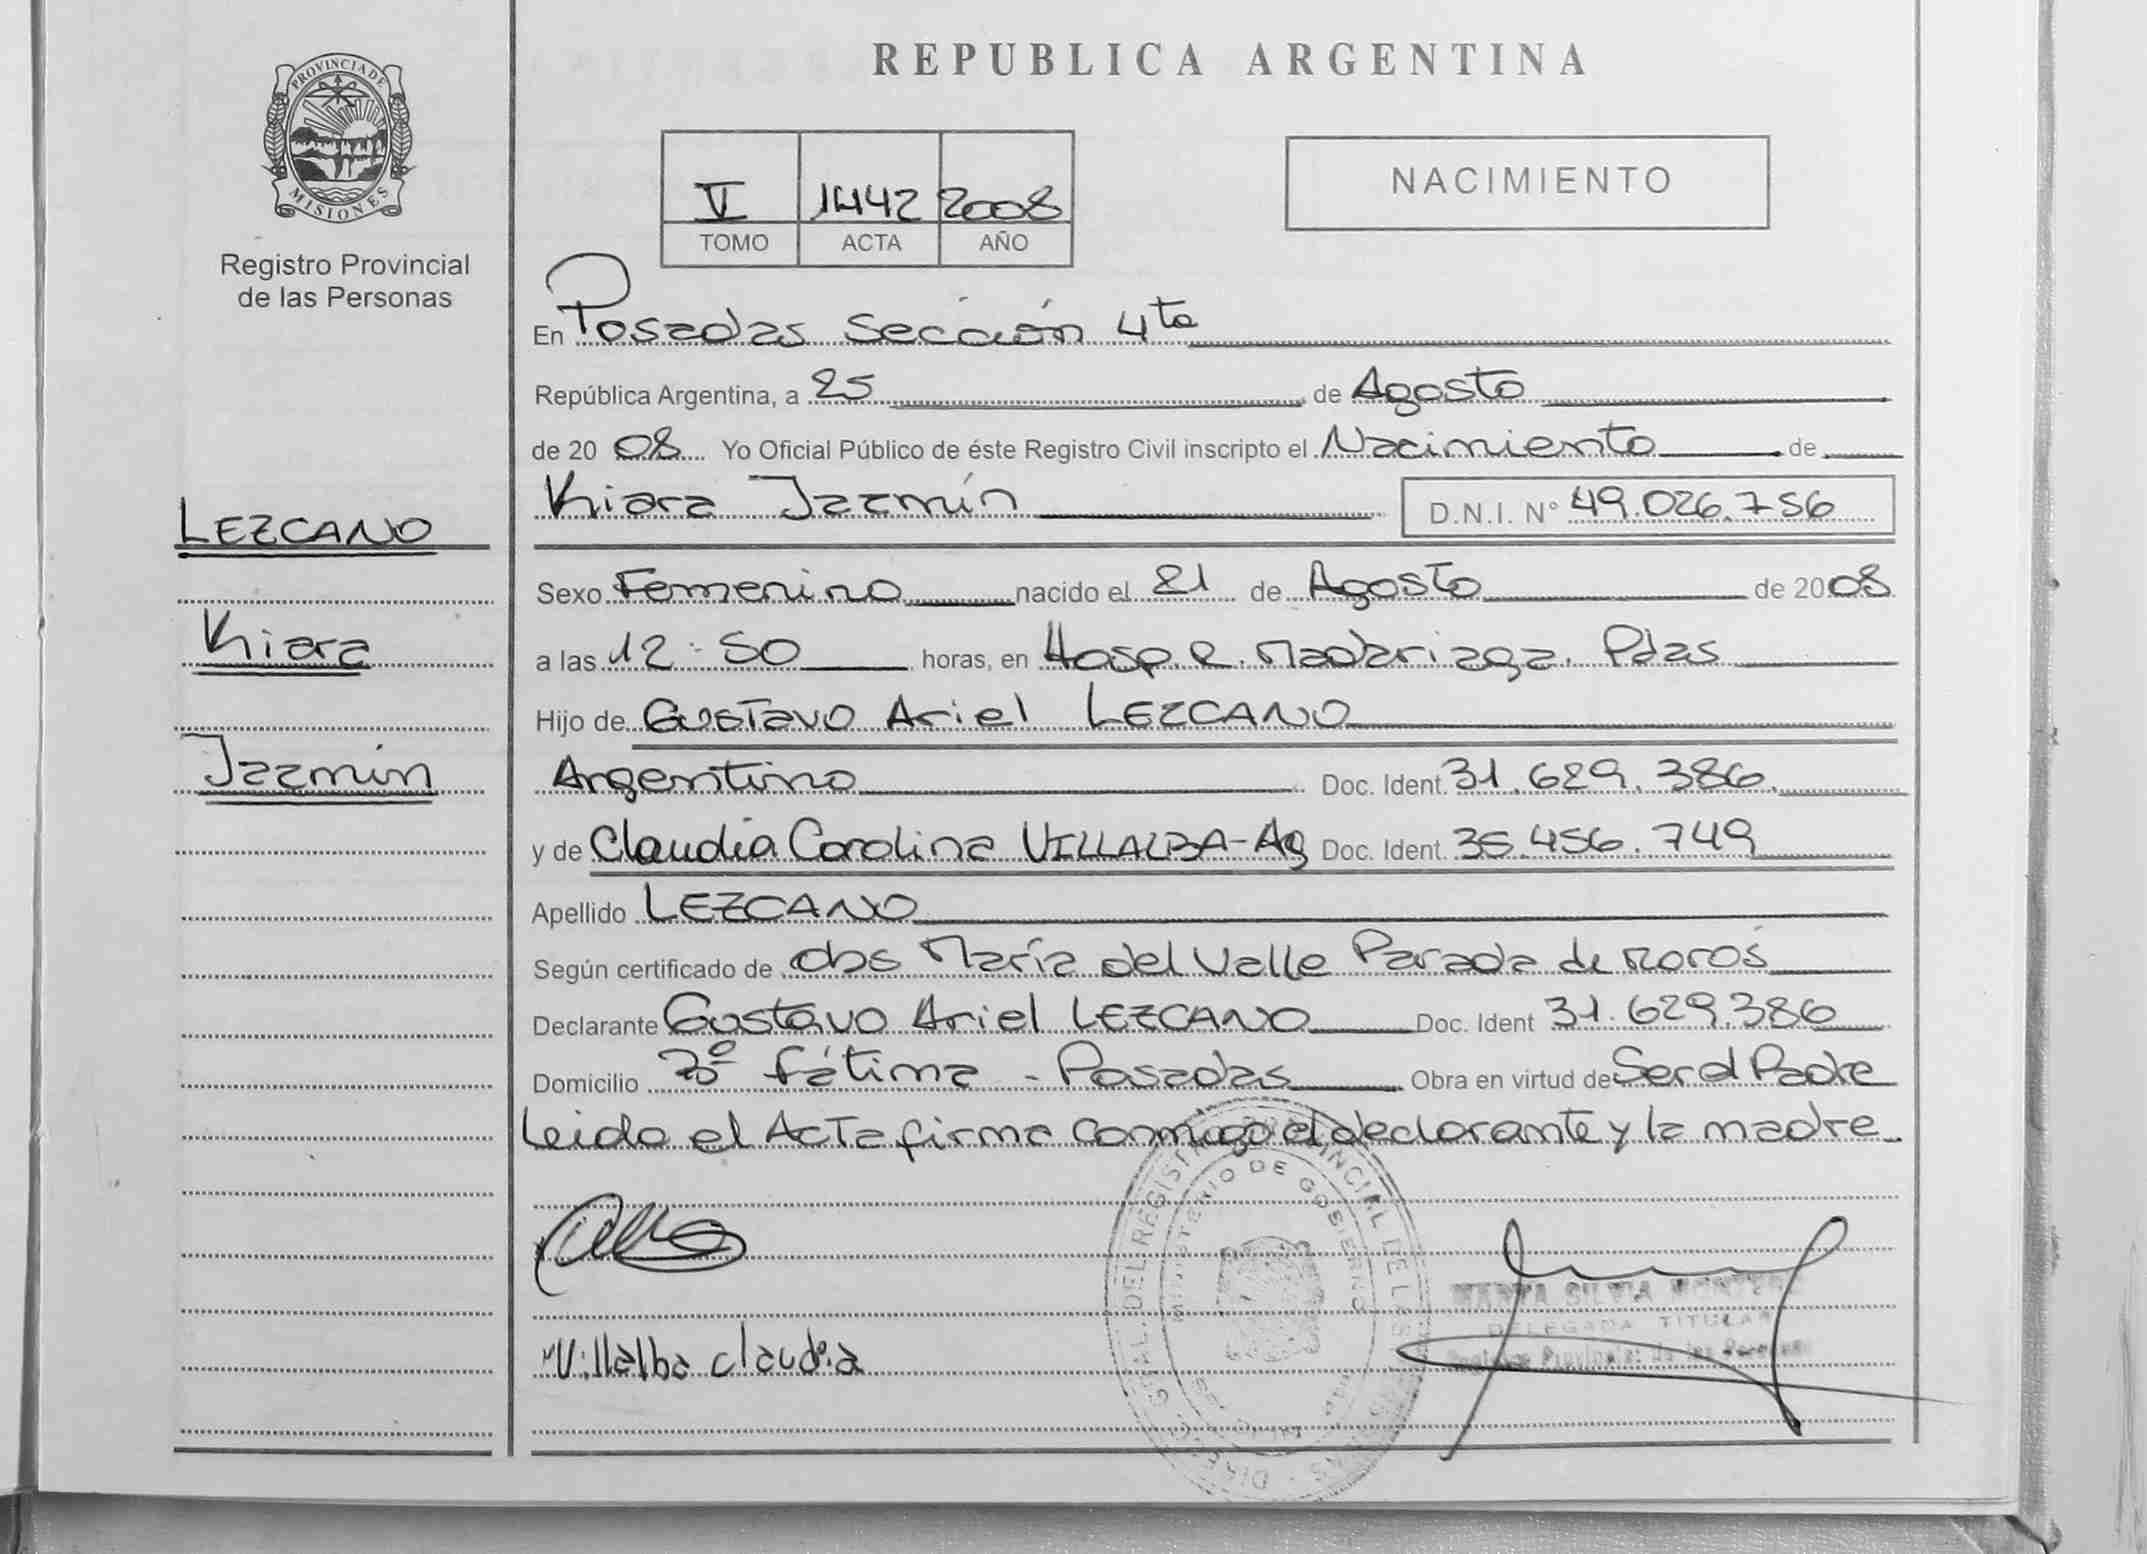 REPUBLICA ARGENTINA
PROVINCIA DE
MISIONES
Registro Provincial
de las Personas
V 1442 2008
TOMO ACTA AÑO
NACIMIENTO
En Posadas Sección 4ta
República Argentina, a 25 de Agosto
de 20 08 Yo Oficial Público de éste Registro Civil inscripto el Nacimiento de
Kiara Jazmín D.N.I. N° 49.026.756
LEZCANO
Kiara
Jazmín
Sexo Femenino nacido el 21 de Agosto de 2008
a las 12:50 horas, en Hosp. R. Madariaga. Pdas
Hijo de Gustavo Ariel LEZCANO
Argentino Doc. Ident. 31.629.386.
y de Claudia Carolina VILLALBA-Ag Doc. Ident. 35.456.749
Apellido LEZCANO
Según certificado de obs María del Valle Parada de Moros
Declarante Gustavo Ariel LEZCANO Doc. Ident 31.629.386
Domicilio Bº Fátima - Posadas Obra en virtud de Ser el Padre
Leido el Acta firma conmigo el declarante y la madre.
Villalba Claudia
MINISTERIO DE GOBIERNO
DELEGADA TITULAR
Registro Provincial de las Personas